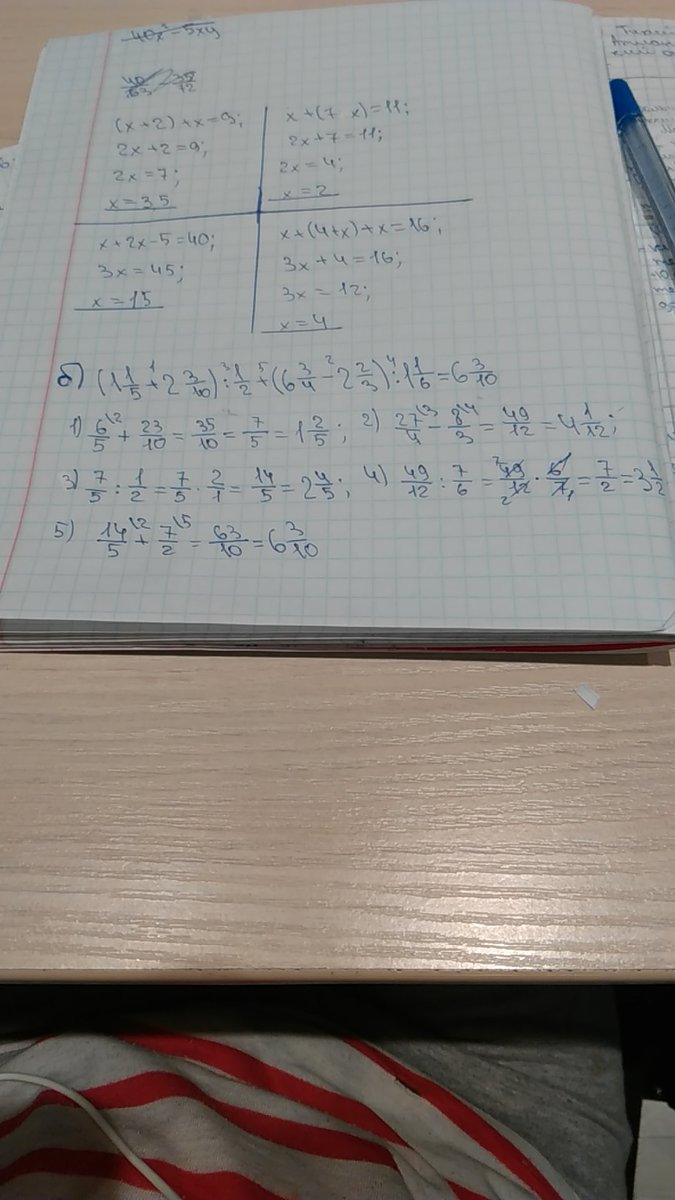 40x² - 5xy
(x+2)+x=9;
2x+2=9;
2x=7;
x=3,5
x+(7 x)=11;
2x+7=11;
2x=4;
x=2
x+2x-5=40;
3x=45;
x=15
x+(4+x)+x=16;
3x+4=16;
3x=12;
x=4
б) (1 1/5 + 2 3/10) : 1/2 + (6 3/4 - 2 2/3) : 1 1/6 = 6 3/10
1) 6/5 + 23/10 = 35/10 = 7/5 = 1 2/5; 2) 27/4 - 8/3 = 49/12 = 4 1/12;
3) 7/5 : 1/2 = 7/5 · 2/1 = 14/5 = 2 4/5; 4) 49/12 : 7/6 = 49/12 · 6/7 = 7/2 = 3 1/2
5) 14/5 + 7/2 = 63/10 = 6 3/10